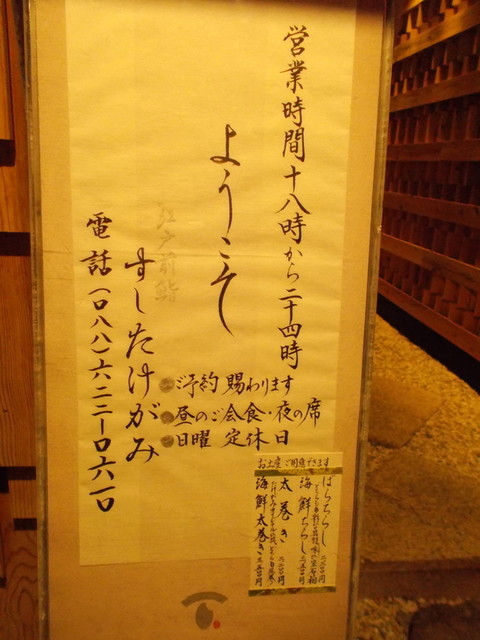 営業時間十八時から二十四時
ようこそ
江戸前鮨
すしたけがみ
電話(〇八八)六二二-〇六一〇
ご予約賜わります
昼のご会食・夜の席
日曜 定休日
お土産ご用意できます
ばらちらし
海鮮ちらし
太巻き
海鮮太巻き